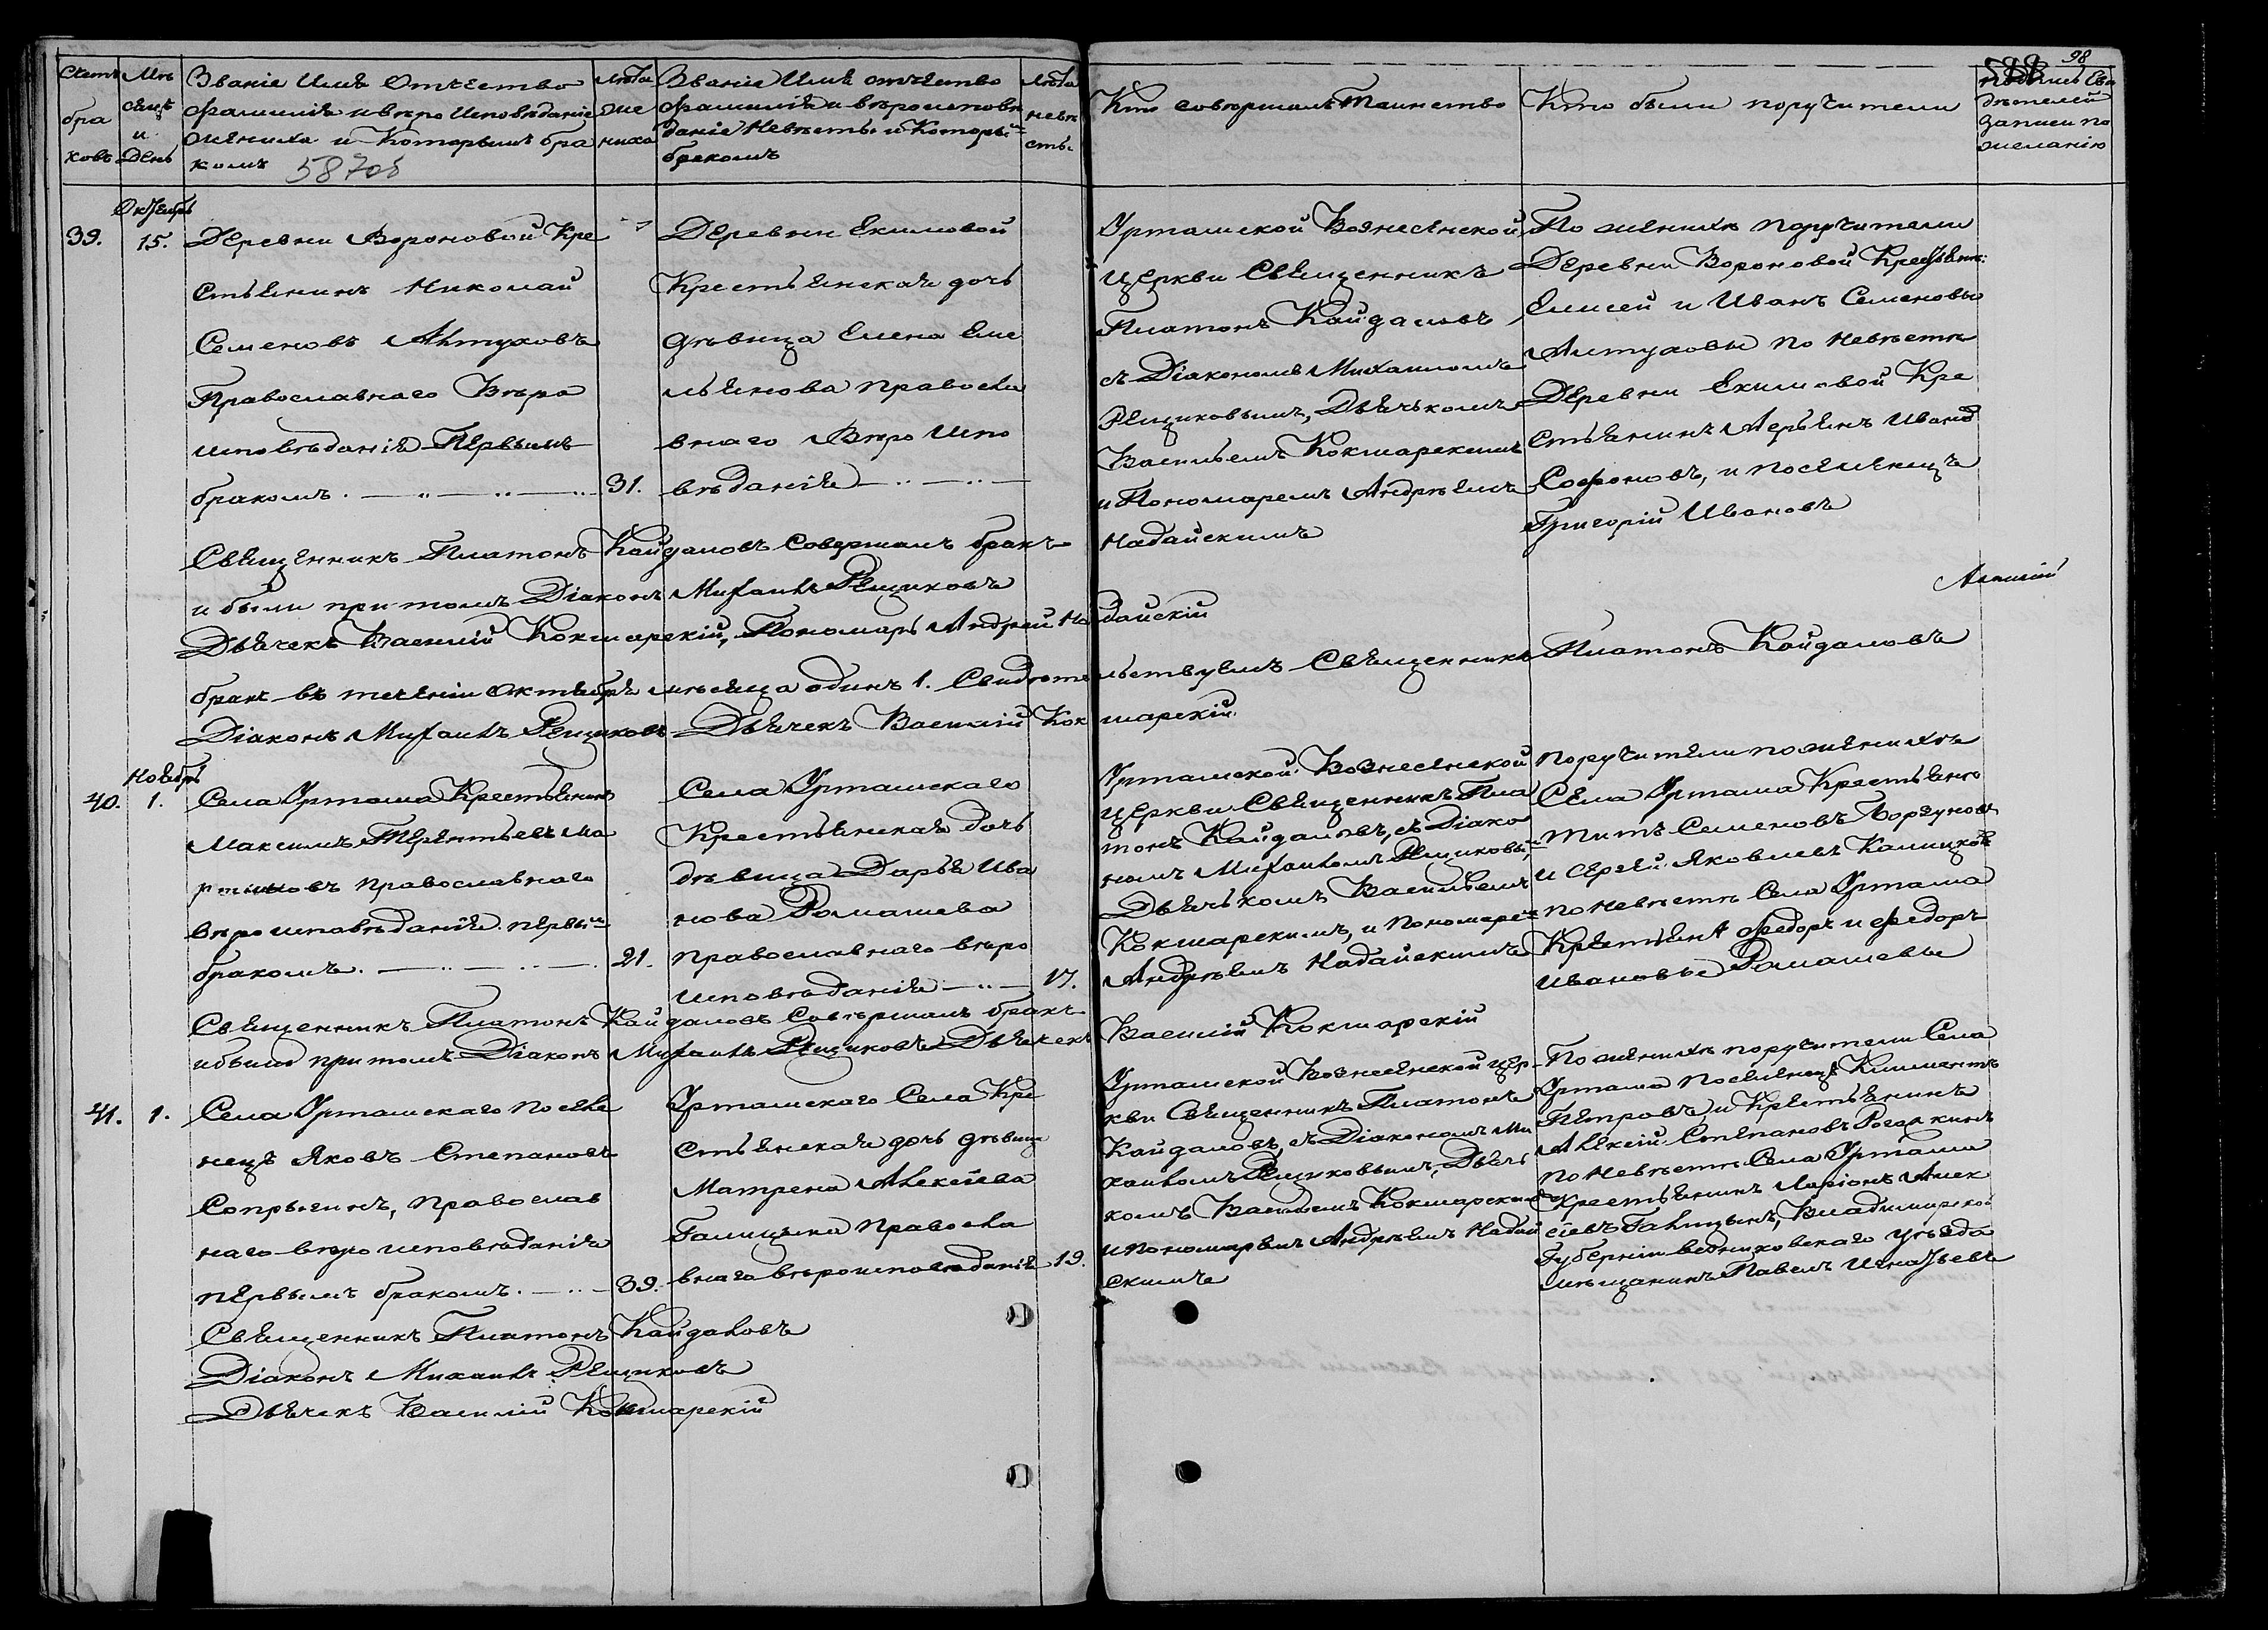 98
Счетъ браковъ
Мѣсяцъ и День
Званіе Имя Отчество
фамилія и вѣро Исповѣданіе
жениха и Которымъ бра
комъ
5870
Лѣта жениха
Званіе Имя отчество
фамилія и вѣроисповѣ
даніе Невѣсты и Которы
бракомъ
Лѣта невѣсты
Кто совершалъ Таинство
Кто были поручители
Свѣ
дѣтелей
записи по
желанію
Октябрь
39.
15.
Деревни Вороновой Кре
стьянинъ Николай
Семеновъ Алтуховъ
Православнаго Вѣро
исповѣданія Первымъ
бракомъ
31.
Деревни Екимовой
Крестьянская дочь
дѣвица Елена Еме
льянова Правосла
внаго Вѣро Испо
вѣданія
Урташской Вознесенской
Церкви Священникъ
Платонъ Кайдаловъ
съ Діакономъ Михаиломъ
Рещиковымъ, Дьячькомъ
Васильемъ Кокшарскимъ
и Пономаремъ Андрѣемъ
Надайскимъ
По женихѣ поручители
Деревни Вороновой Крестьян:
Елисей и Иванъ Семеновы
Алтуховы по Невѣстѣ
Деревни Екимовой Кре
стьянинъ Иванъ
Софоновъ, и поселенецъ
Григорій Ивановъ
Священникъ Платонъ Кайдаловъ Совершалъ бракъ
и были при томъ Діаконъ Михаилъ Рещиковъ
Дьячекъ Василій Кокшарскій, Пономарь Андрей Надайскій
бракъ въ теченіи Октября мѣсяца одинъ 1. Свидѣтельствуемъ Священникъ Платонъ Кайдаловъ
Діаконъ Михаилъ Рещиковъ Дьячекъ Василій Кокшарскій
Ноябрь
40.
1.
Села Урташа Крестьянинъ
Максимъ Терентьевъ Ма
ртыновъ Православнаго
вѣроисповѣданія первы
бракомъ.
21.
Села Урташскаго
Крестьянская дочь
дѣвица Дарья Ива
нова Ромашева
Православнаго вѣро
исповѣданія
17.
Урташской Вознесенской
Церкви Священникъ Пла
тонъ Кайдаловъ, съ Діако
номъ Михаиломъ Рещиковы
Дьячькомъ Васильемъ
Кокшарскимъ, и Пономаре
Андрѣемъ Надайскимъ
Поручители по женихѣ
Села Урташа Крестьяне
Титъ Семеновъ
и Сергѣй Яковлевъ
по Невѣстѣ Села Урташа
Крестьяне Федоръ и Федоръ
Ивановы Ромашевы
Священникъ Платонъ Кайдаловъ Совершалъ бракъ
и были при томъ Діаконъ Михаилъ Рещиковъ Дьячекъ Василій Кокшарскій
41.
1.
Села Урташскаго Поселе
нецъ Яковъ Степановъ
Сопрыгинъ, Православ
наго вѣроисповѣданія
первымъ бракомъ.
39.
Урташскаго Села Кре
стьянская дочь дѣвица
Матрена Алексѣева
Галицына Правосла
внаго вѣроисповѣданія
19.
Урташской Вознесенской цер
кви Священникъ Платонъ
Кайдаловъ, съ Діакономъ Ми
хаиломъ Рещиковымъ, Дьячь
комъ Васильемъ Кокшарским
и Пономаремъ Андрѣемъ Надай
скимъ
По женихѣ поручители Села
Урташа Поселенецъ Климентъ
Петровъ и Крестьянинъ
Алексѣй Степановъ
по Невѣстѣ Села Урташа
Крестьянинъ Ларіонъ Алек
сѣевъ Галицынъ, Владимирской
Губерніи Вязниковскаго уѣзда
мѣщанинъ Павелъ Игнатьевъ
Священникъ Платонъ Кайдаловъ
Діаконъ Михаилъ Рещиковъ
Дьячекъ Василій Кокшарскій